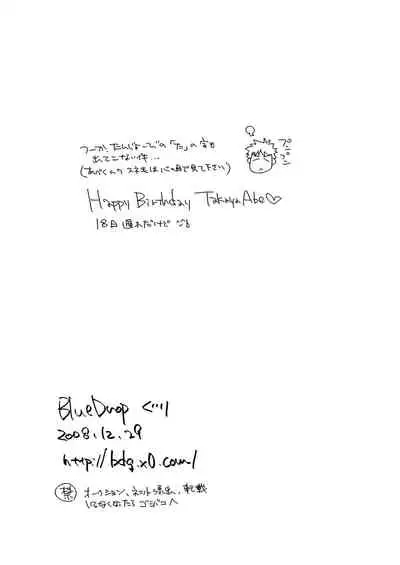 フーか、たんじょーびの「た」の字も
出てこない件…
(あべくんのスネ毛は心の目で見て下さい)
プンプン
Happy Birthday Takaya Abe♡
18日遅れだけど
BlueDrop
2008.12.29
http://bdg.x0.com/
禁 オークション、ネット流出、転載
いらなくなったらゴミバコへ